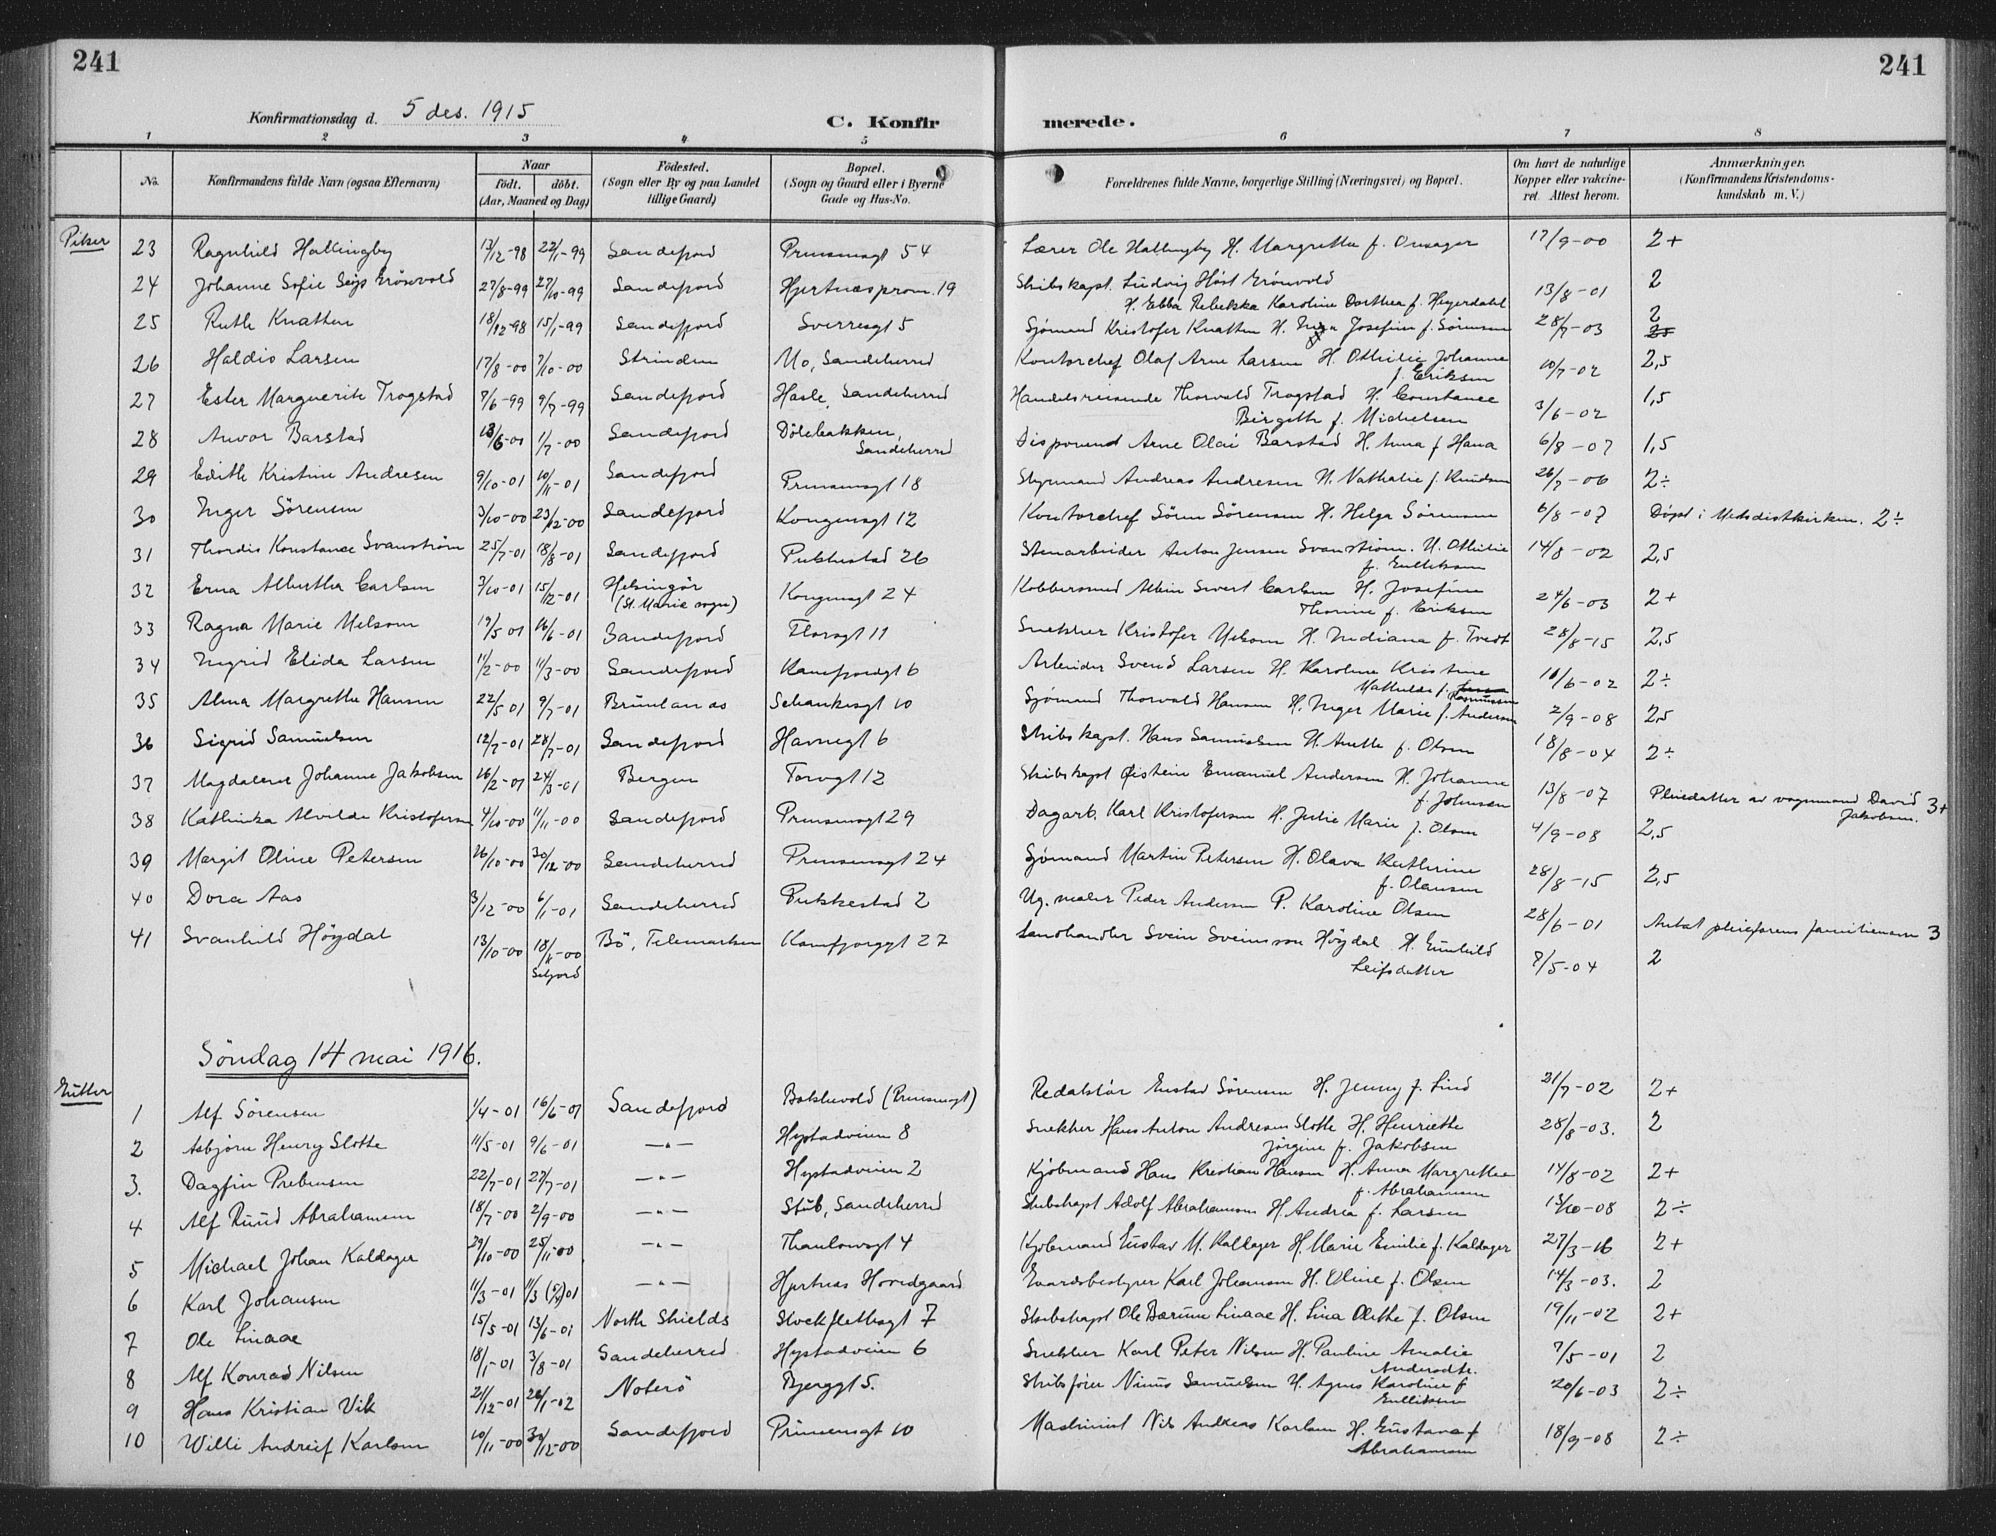 241
241
Konfirmationsdag d. 5 des. 1915
C. Konfir
merede.
1 2 3 4 5 6 7 8
No.
Konfirmandens fulde Navn (ogsaa Efternavn)
Naar
født. døbt.
(Aar, Maaned og Dag)
Fødested.
(Sogn eller By og paa Landet
tillige Gaard)
Bopæl.
(Sogn og Gaard eller i Byerne
Gade og Hus-No.
Forældrenes fulde Navne, borgerlige Stilling (Næringsvei) og Bopæl.
Om havt de naturlige
Kopper eller vakcine-
ret. Attest herom.
Anmærkninger.
(Konfirmandens Kristendoms-
kundskab m. V.)
Piker
23 Ragnhild Hallingby 13/12-98 22/1-99 Sandefjord Prinsensgt 54 Lærer Ole Hallingby H. Margrethe f. Onsager 17/9-00 2+
24 Johanne Sofie Grönvold 27/8-99 27/10-99 Sandefjord Hjertnæsprom. 19 Skibskapt. Ludvig Höst Grönvold 13/8-01 2
H. Ebba Rebekka Karoline Dorthea f. Heyerdahl
25 Ruth Knatten 18/12-98 15/1-99 Sandefjord Sverresgt 5 Sjømand Kristofer Knatten H. Inga Josefine f. Sörensen 28/7-03 2
26 Haldis Larsen 17/8-00 7/10-00 Strinden Mo, Sandeherred Kontorchef Olaf Arne Larsen H. Othilie Johanne 10/7-02 2,5
f. Eriksen
27 Ester Marguerite Trogstad 7/6-99 9/7-99 Sandefjord Hasle, Sandeherred Handelsreisende Thorvald Trogstad H. Constance 3/6-02 1,5
Birgitte f. Michelsen
28 Anvor Barstad 13/6-00 1/7-00 Sandefjord Dölebakken, Disponend Arne Olai Barstad H. Anna f. Hana 6/8-07 1,5
Sandeherred
29 Edith Kristine Andresen 9/10-01 10/11-01 Sandefjord Prinsensgt 18 Styrmand Andreas Andresen H. Nathalie f. Knudsen 26/7-06 2÷
30 Inger Sörensen 3/10-00 23/12-00 Sandefjord Kongensgt 12 Kontorchef Sören Sörensen H. Helga Sörensen 6/8-07 Döpt i Metodistkirken. 2÷
31 Thordis Konstance Svanström 25/7-01 18/8-01 Sandefjord Pukkestad 26 Stenarbeider Anton Jensen Svanström. H. Othilie 14/8-02 2,5
f. Gulliksen
32 Erna Alberthe Carlsen 3/10-01 15/12-01 Helsingör Kongensgt 24 Kobbersmed Albin Sivert Carlsen H. Josefine 24/6-03 2+
(St. Marie sogn) Thorine f. Eriksen
33 Ragna Marie Melsom 19/5 01 16/6-01 Sandefjord Torvgt 11 Snekker Kristofer Melsom H. Indiana f. Tvedt 28/8-15 2,5
34 Ingrid Elida Larsen 11/2-00 11/3-00 Sandefjord Kamfjordgt 6 Arbeider Svend Larsen H. Karoline Kristine 16/6-02 2÷
Mathilde f. Rasmussen
35 Alma Margrethe Hansen 22/5 01 9/7-01 Brunlanæs Schankesgt 10 Sjømand Thorvald Hansen H. Inger Marie f. Andersen 2/9-08 2,5
36 Sigrid Samuelsen 12/7-01 28/7-01 Sandefjord Havnegt 6 Skibskapt. Hans Samuelsen H. Anette f. Olsen 18/8-04 2÷
37 Magdalene Johanne Jakobsen 16/2-01 24/3-01 Bergen Torvgt 12 Skibskapt Øistein Emanuel Andersen H. Johanne 13/8-07 Pleiedatter av vognmand David 3+
f. Johnsen Jakobsen.
38 Kathinka Alvilde Kristofersen 4/10-00 11/11-00 Sandefjord Prinsensgt 29 Dagarb. Karl Kristofersen H. Julie Marie f. Olsen 4/9-08 2,5
39 Margit Oline Petersen 26/10-00 30/12-00 Sandeherred Prinsensgt 24 Sjømand Martin Petersen H. Olava Kathrine 28/8-15 2,5
f. Olausen
40 Dora Aas 3/12-00 6/1-01 Sandeherred Pukkestad 2 Ug. maler Peder Andersen P. Karoline Olsen 28/6-01 Antat pleiefarens familienavn 3
41 Svanhild Höydal 13/10-00 18/11-00 Bö, Telemarken Kamfjorggt 27 Landhandler Svein Sveinsson Höydal H. Gunhild 7/5-04 2
Seljord Leifsdatter
Söndag 14 mai 1916.
Gutter
1 Alf Sörensen 1/4-01 16/6-01 Sandefjord Bokkevold (Prinsensgt) Redaktör Gustav Sörensen H. Jenny f. Lind 31/7-02 2+
2 Asbjörn Henry Slotte 11/5-01 9/6-01 -"- Hystadveien 8 Snekker Hans Anton Andresen Slotte H. Henriette 28/8-03. 2
Jörgine f. Jakobsen
3. Dagfin Prebensen 22/7-01 27/7-01 -"- Hystadveien 2 Kjöbmand Hans Kristian Hansen H. Anna Margrethe 14/8-02 2+
f. Abrahamsen
4 Alf Ruud Abrahamsen 18/7-00 2/9-00 -"- Stub, Sandeherred Skibskapt Adolf Abrahamsen H. Andrea f. Larsen 15/10-08 2÷
5 Michael Johan Kaldager 29/10-00 25/11-00 -"- Thaulowsgt 4 Kjöbmand Gustav M. Kaldager H. Marie Emilie f. Kaldager 27/3-16 2+
6 Karl Johansen 11/3-01 -"- Hjertnes Hovedgaard Gaardsbestyrer Karl Johansen H. Oline f. Olsen 14/3-03. 2
7 Ole Linaae 15/5-01 13/6-01 North Shields Stockflethsgt 7 Skibskapt Ole Bærum Linaae H. Lina Olethe f. Olsen 19/11-02 2+
8 Alf Konrad Nilsen 18/1-01 3/8-01 Sandeherred Hystadveien 6 Snekker Karl Peter Nilsen H. Pauline Amalie 7/5-01 2
Andersdtr.
9 Hans Kristian Vik 21/12-01 26/1-02 Noterö Bjerggt 5. Skibsförer Ninus Samuelsen H. Agnes Karoline f 20/6-03 2÷
Gulliksen
10 Willi Andreif Karlsen 10/11-00 30/12-00 Sandefjord Prinsensgt 10 Maskinist Nils Andreas Karlsen H. Gustava f 18/9-08 2÷
Abrahamsen